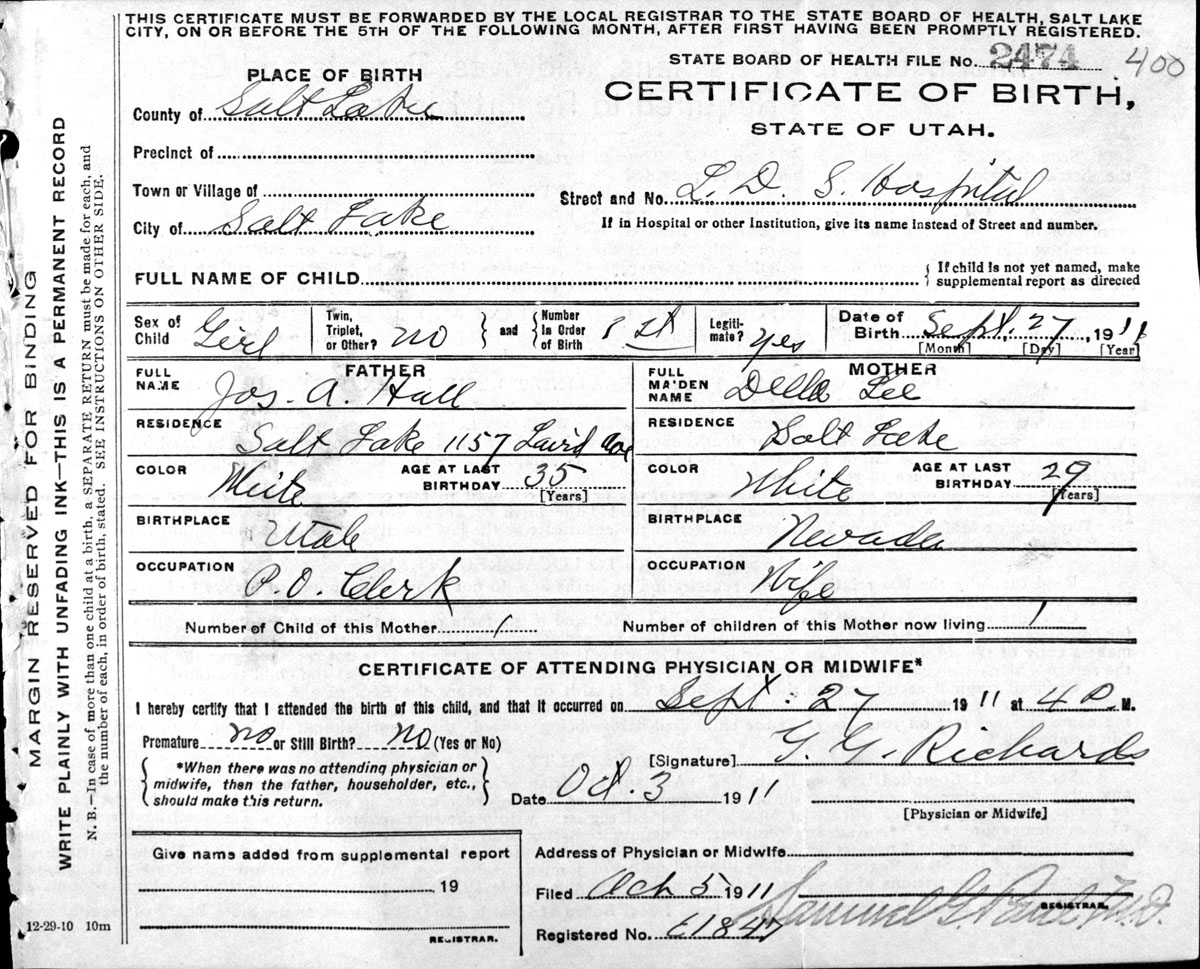 THIS CERTIFICATE MUST BE FORWARDED BY THE LOCAL REGISTRAR TO THE STATE BOARD OF HEALTH, SALT LAKE
CITY, ON OR BEFORE THE 5TH OF THE FOLLOWING MONTH, AFTER FIRST HAVING BEEN PROMPTLY REGISTERED.
STATE BOARD OF HEALTH FILE No. 2474 400
PLACE OF BIRTH
CERTIFICATE OF BIRTH,
County of Salt Lake
STATE OF UTAH.
Precinct of
Town or Village of
Street and No. L. D. S. Hospital
City of Salt Lake
If in Hospital or other Institution, give its name instead of Street and number.
FULL NAME OF CHILD
If child is not yet named, make
supplemental report as directed
Sex of Child Girl
Twin, Triplet, or Other? no
and Number In Order of Birth 1st
Legiti-mate? yes
Date of Birth Sept. 27, 1911
[Month] [Day] [Year]
FATHER
FULL NAME Jos. A. Hall
MOTHER
FULL MAIDEN NAME Della Lee
RESIDENCE Salt Lake 1157 Laird Ave
RESIDENCE Salt Lake
COLOR White AGE AT LAST BIRTHDAY 35 [Years]
COLOR White AGE AT LAST BIRTHDAY 29 [Years]
BIRTHPLACE Utah
BIRTHPLACE Nevada
OCCUPATION P.O. Clerk
OCCUPATION Wife
Number of Child of this Mother 1
Number of children of this Mother now living 1
CERTIFICATE OF ATTENDING PHYSICIAN OR MIDWIFE*
I hereby certify that I attended the birth of this child, and that it occurred on Sept. 27 1911 at 4 P. M.
Premature no or Still Birth? no (Yes or No)
[Signature] G. G. Richards
*When there was no attending physician or
midwife, then the father, householder, etc.,
should make this return.
Date Oct. 3 1911
[Physician or Midwife]
Give name added from supplemental report
19
REGISTRAR.
Address of Physician or Midwife
Filed Oct 5 1911
Samuel G. M.D.
REGISTRAR.
Registered No. C1847
12-29-10 10m
MARGIN RESERVED FOR BINDING
WRITE PLAINLY WITH UNFADING INK—THIS IS A PERMANENT RECORD
N. B.—In case of more than one child at a birth, a SEPARATE RETURN must be made for each, and
the number of each, in order of birth, stated. SEE INSTRUCTIONS ON OTHER SIDE.